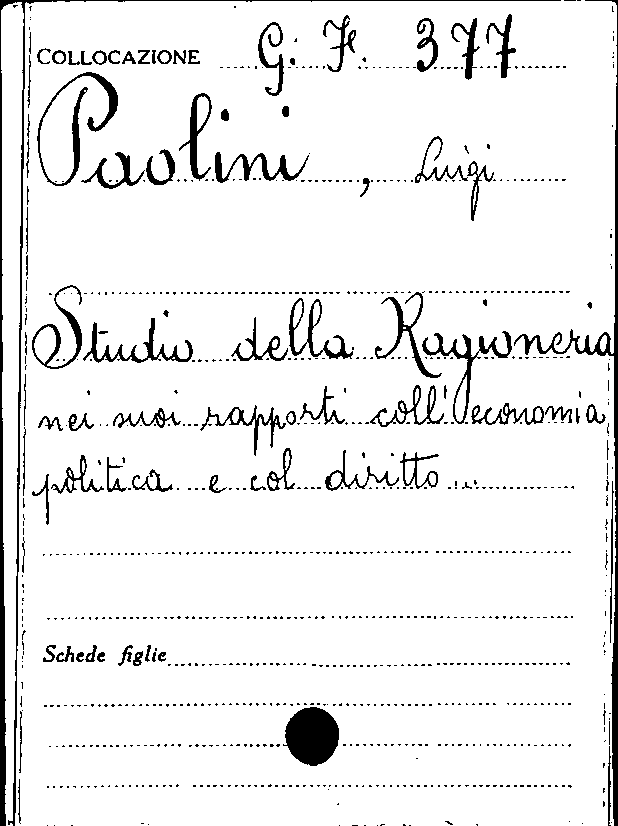 COLLOCAZIONE G. F. 377
Paolini, Luigi
Studio della Ragioneria
nei suoi rapporti coll'economia
politica e col diritto...
Schede figlie